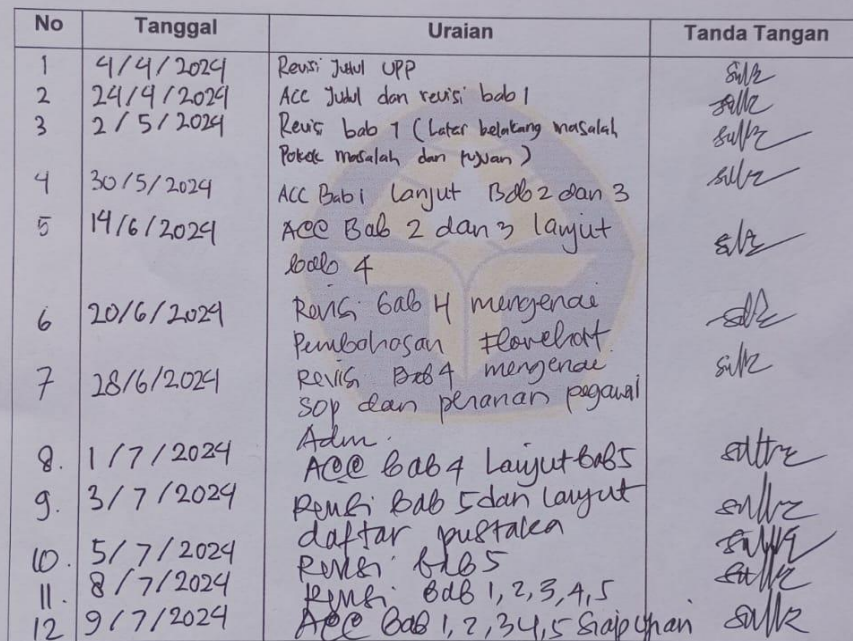 No Tanggal Uraian Tanda Tangan
1 4/4/2024 Revisi Judul UPP
2 24/4/2024 Acc Judul dan revisi bab 1
3 2/5/2024 Revisi bab 1 (Latar belakang masalah
Pokok masalah dan tujuan)
4 30/5/2024 ACC Bab 1 Lanjut Bab 2 dan 3
5 14/6/2024 ACC Bab 2 dan 3 lanjut
bab 4
6 20/6/2024 Revisi bab 4 mengenai
Pembahasan Flowchart
7 28/6/2024 Revisi Bab 4 mengenai
SOP dan peranan pegawai
Adm.
8. 1/7/2024 ACC bab 4 Lanjut Bab 5
9. 3/7/2024 Revisi Bab 5 dan lanjut
daftar pustaka
10. 5/7/2024 Revisi bab 5
11. 8/7/2024 Revisi Bab 1, 2, 3, 4, 5
12 9/7/2024 ACC Bab 1, 2, 3 4, 5 Siap